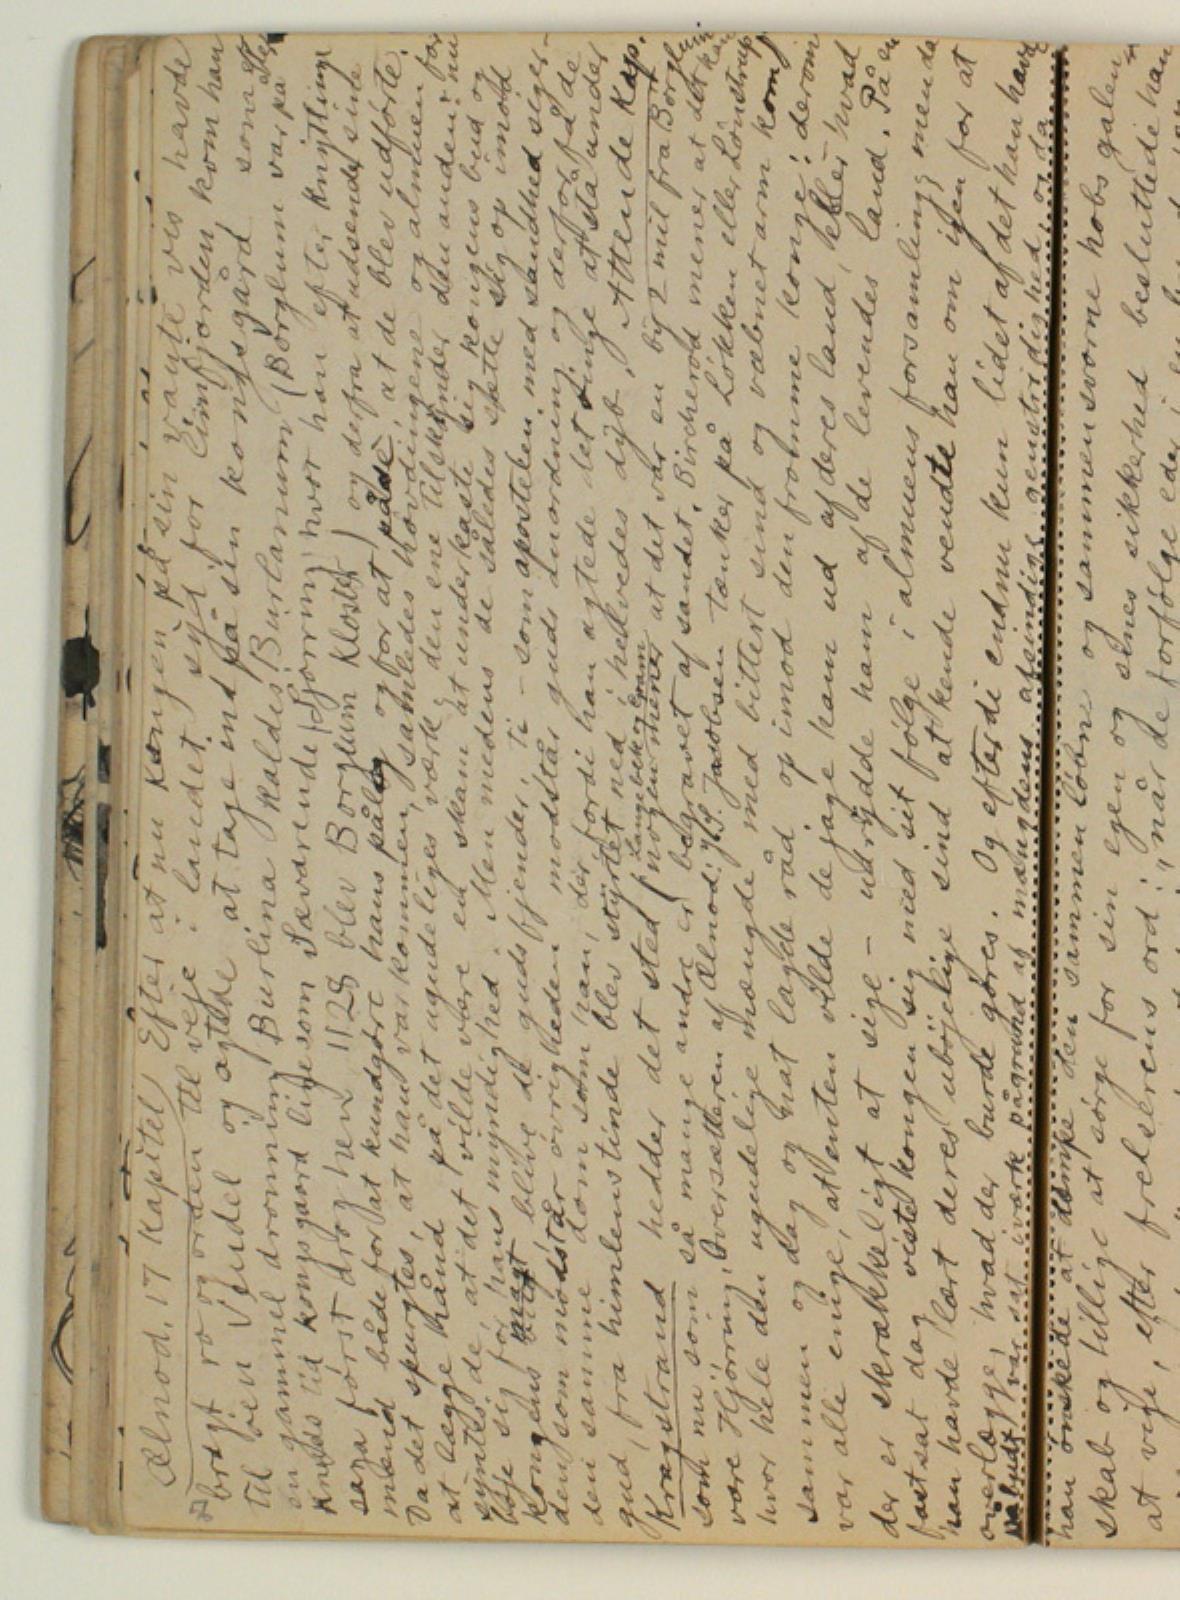 Ælnod, 17 Kapitel) Efter at nu kongen på sin vante vis havde
bragt ro og orden til veje i landet syd for Limfjorden kom han
til øen Vendel og agtede at tage ind på sin kongsgård som efter
en gammel dronning Burlina kaldes Burlanum (Börglum var på
Knuds tid kongsgaard ligesom Sæværende/Hjørring/hvor han efter Knytlinge
saga først drog hen, 1128 blev Borglum Kloster) og derfra at udsende sine
mænd både for at kundgöre hans pålæg og for at påsè, at de blev udförte.
Da det spurgtes, at han var kommen, samledes hövdingene og almuen for
at lægge hånd på det ugudeliges værk, den ene tilskynder den anden: nu
syntes de, at det vilde være en skam at underkaste sig kongens bud og
böje sig for hans myndighed. Men medens de således satte sig op imöd
kongens magt, blive de guds fjender, ti - som apostelen med sandhed siger -
den som modstår övrigheden modstår guds anordning og derfor få de
den samme dom som han, der fordi han agtede det ringe at stå under
gud, fra himlens tinde blev styrtet ned i helvedes dyb. Attende Kap.
Kragstrand hedder det sted (nogen mener Langebek og Gram at det var en by 2 mil fra Börglum
som nu som så mange andre er begravet af sandet. Bircherod mener at det kan
være Hjörring, Oversætteren af Ælnod: J.S. Jacobsen tænker på Lökken eller Lönstrup
hvor hele den ugudelige mængde med bittert sind og væbnet arm kom
sammen og dag og nat lagde råd op imod den fromme konge; derom
var alle enige, at enten vilde de jage ham ud af deres land, eller - hvad
der er skrækkeligt at sige - udrydde ham af de levendes land. På en
fastsat dag viste kongen sig med sit følge i almuens forsamling; men da
han havde lært deres uböjelige sind at kende vendte han om igen for at
overlæge, hvad der burde göres. Og efterdi endnu kun lidet af det han havde
påbudt var sat i værk pågrund af mængdens afsindige genstridighed, og da
han önskede at dæmpe den sammenløbne og sammensvorne hobs galen-
skab og tillige at sörge for sin egen og synes sikkerhed besluttede han
at vige, efter frelserens ord: "når de forfölge eder i en